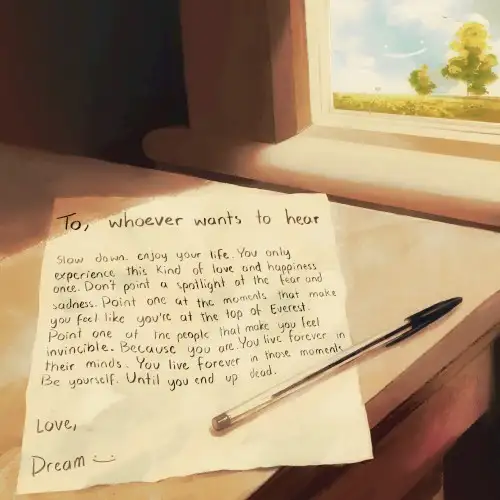 To, whoever wants to hear
Slow down. enjoy your life. You only
experience this kind of love and happiness
once. Don't point a spotlight at the fear and
sadness. Point one at the moments that make
you feel like you're at the top of Everest.
Point one at the people that make you feel
invincible. Because you are. You live forever in
their minds. You live forever in those moments.
Be yourself. Until you end up dead.
Love,
Dream :)